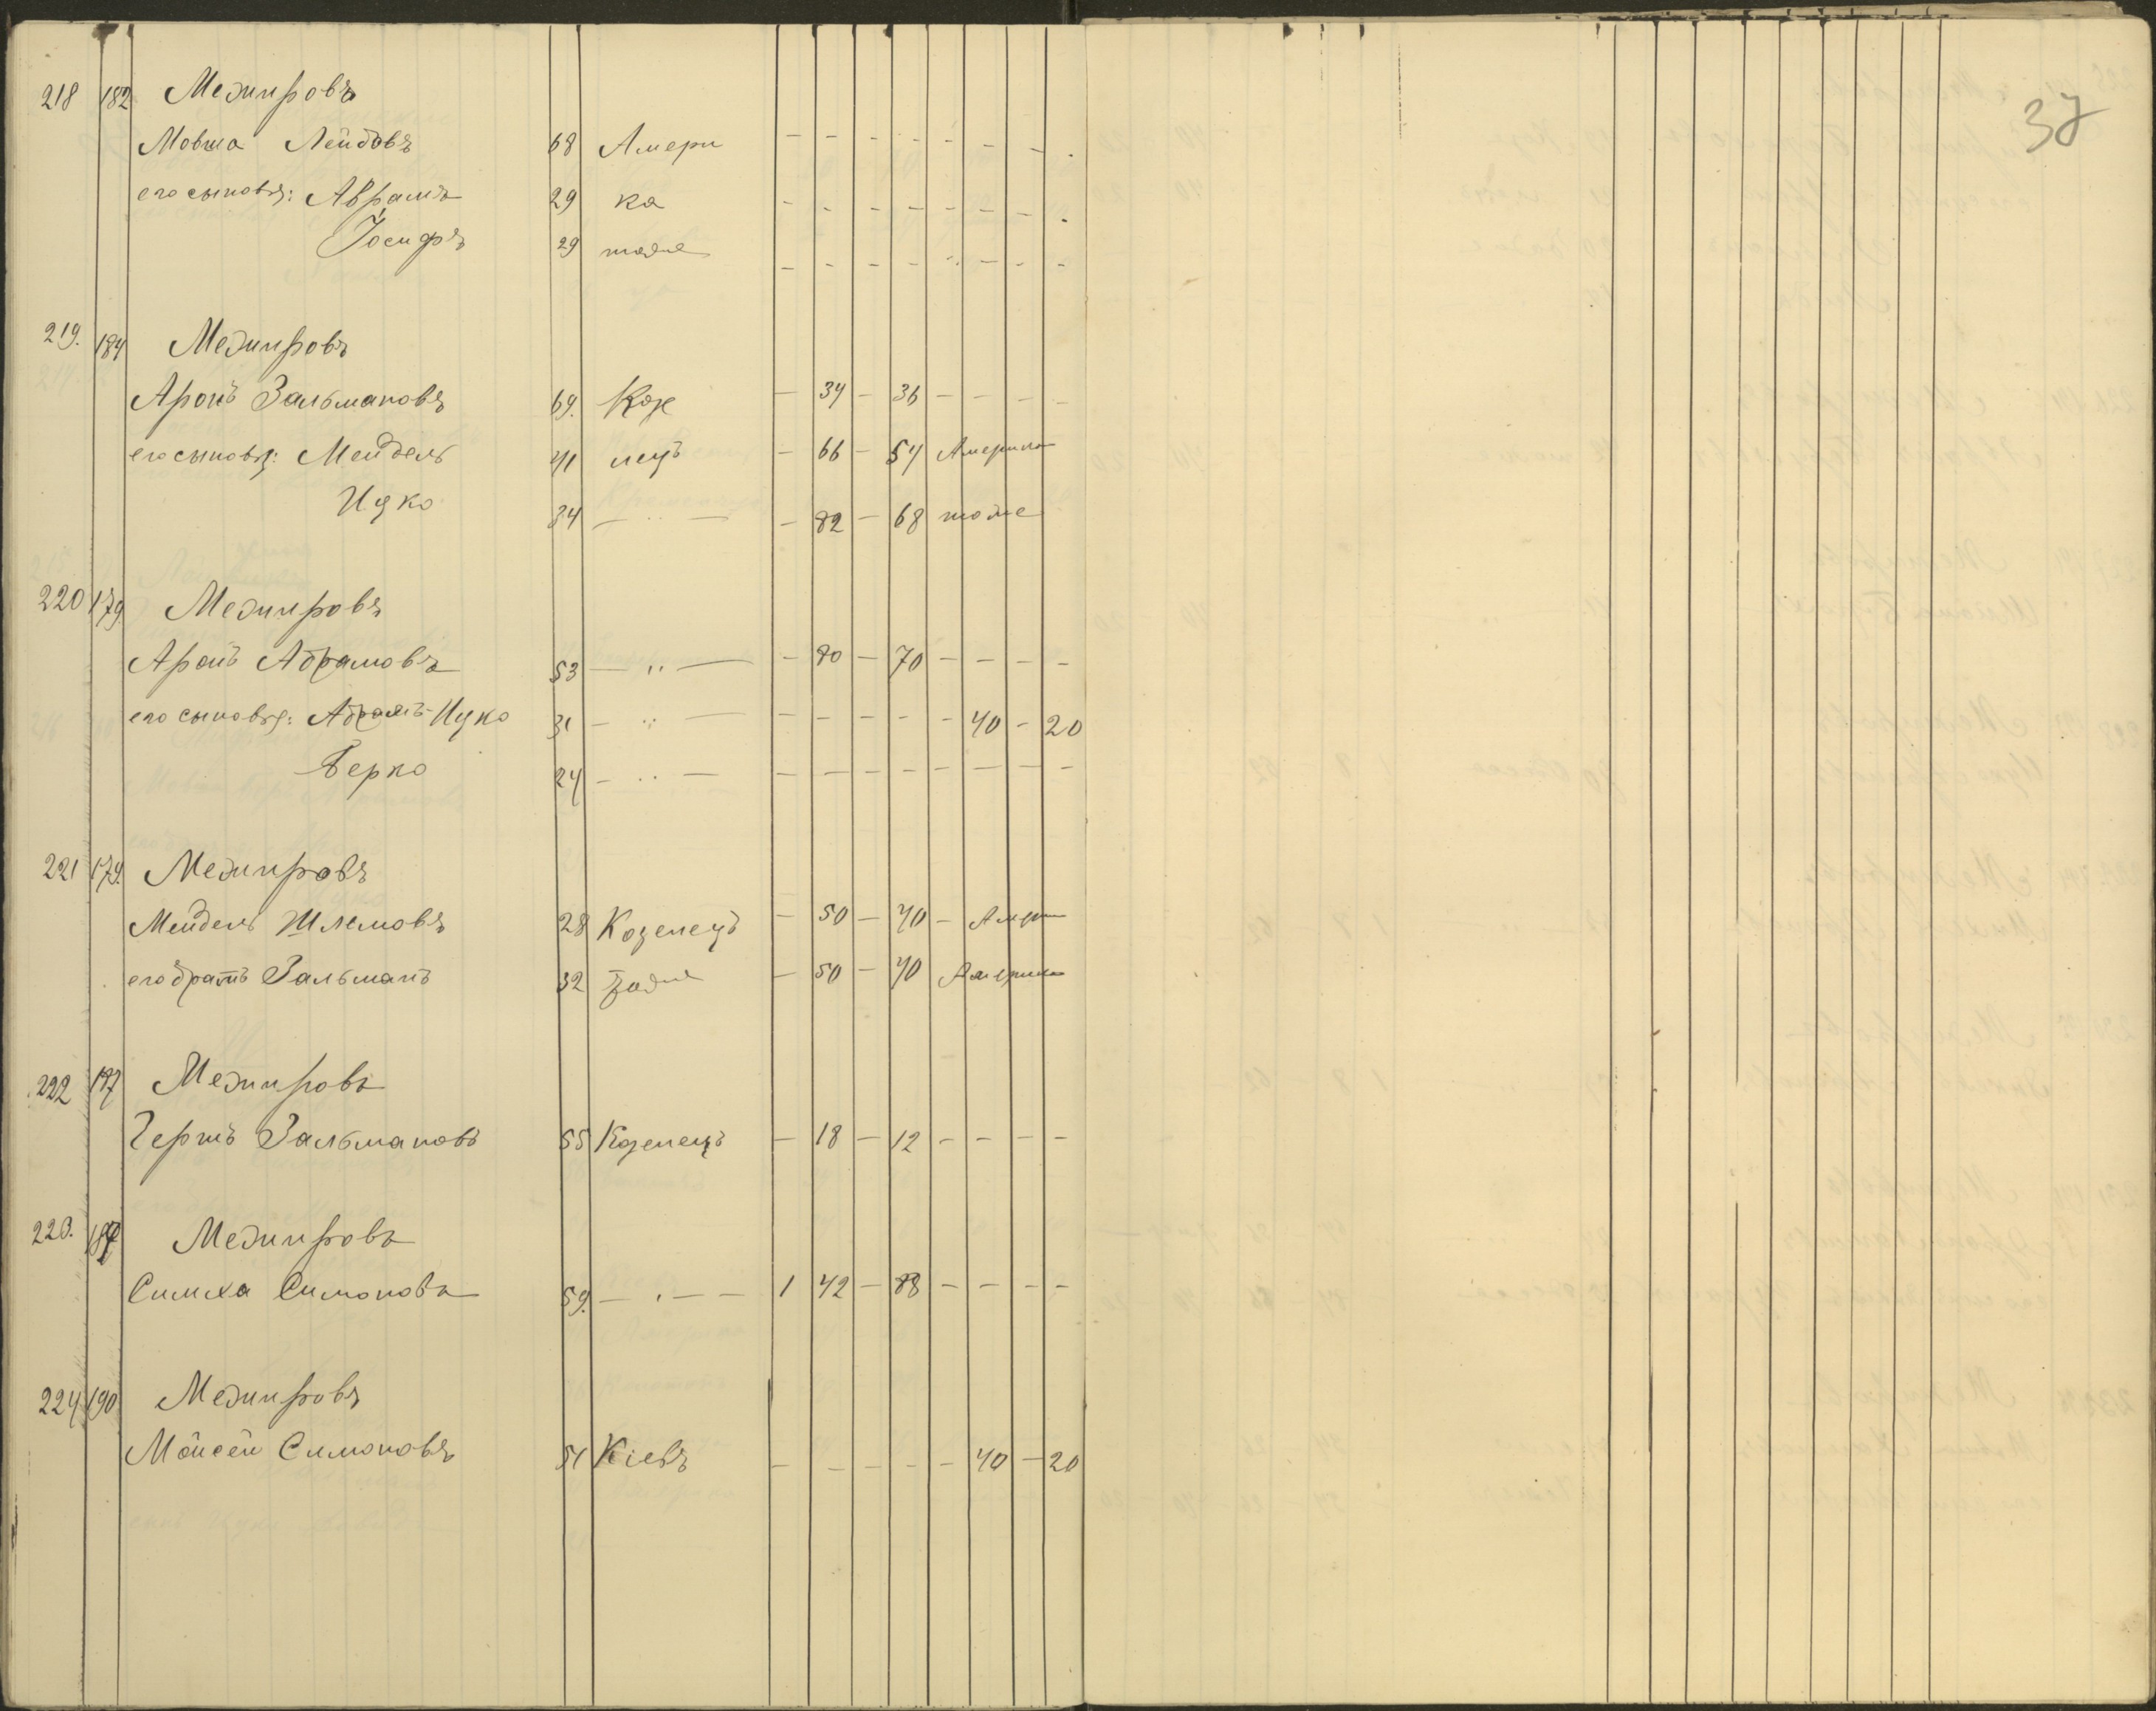 37
218 182 Межировъ
Мовша Лейбовъ 68 Амери - - - - - - - -
его сыновья: Абрамъ 29 ка - - - - - - - -
Іосифъ 29 тоже - - - - - - - -
219. 184 Межировъ
Аронъ Зальмановъ 69. Козе - 34 - 36 - - - -
его сыновья: Мендель 41 лецъ - 66 - 54 Америка
Ицко 34 — " — - 82 - 68 тоже
220 179 Межировъ
Аронъ Абрамовъ 53 — " — - 80 - 70 - - - -
его сыновья: Абрамъ-Ицко 31 — " — - - - - - 40 - 20
Берко 24 — " — - - - - - - - -
221 179. Межировъ
Мендель Шлемовъ 28 Козелецъ - 50 - 40 - Амери
его братъ Зальманъ 32 тоже - 50 - 40 Америка
222 187 Межировъ
Гершъ Зальмановъ 55 Козелецъ - 18 - 12 - - - -
223. Межировъ
Симха Симоновъ 59. — " — 1 42 - 88 - - - -
224 190 Межировъ
Мойсей Симоновъ 51 Кіевъ - - - - - 40 - 20